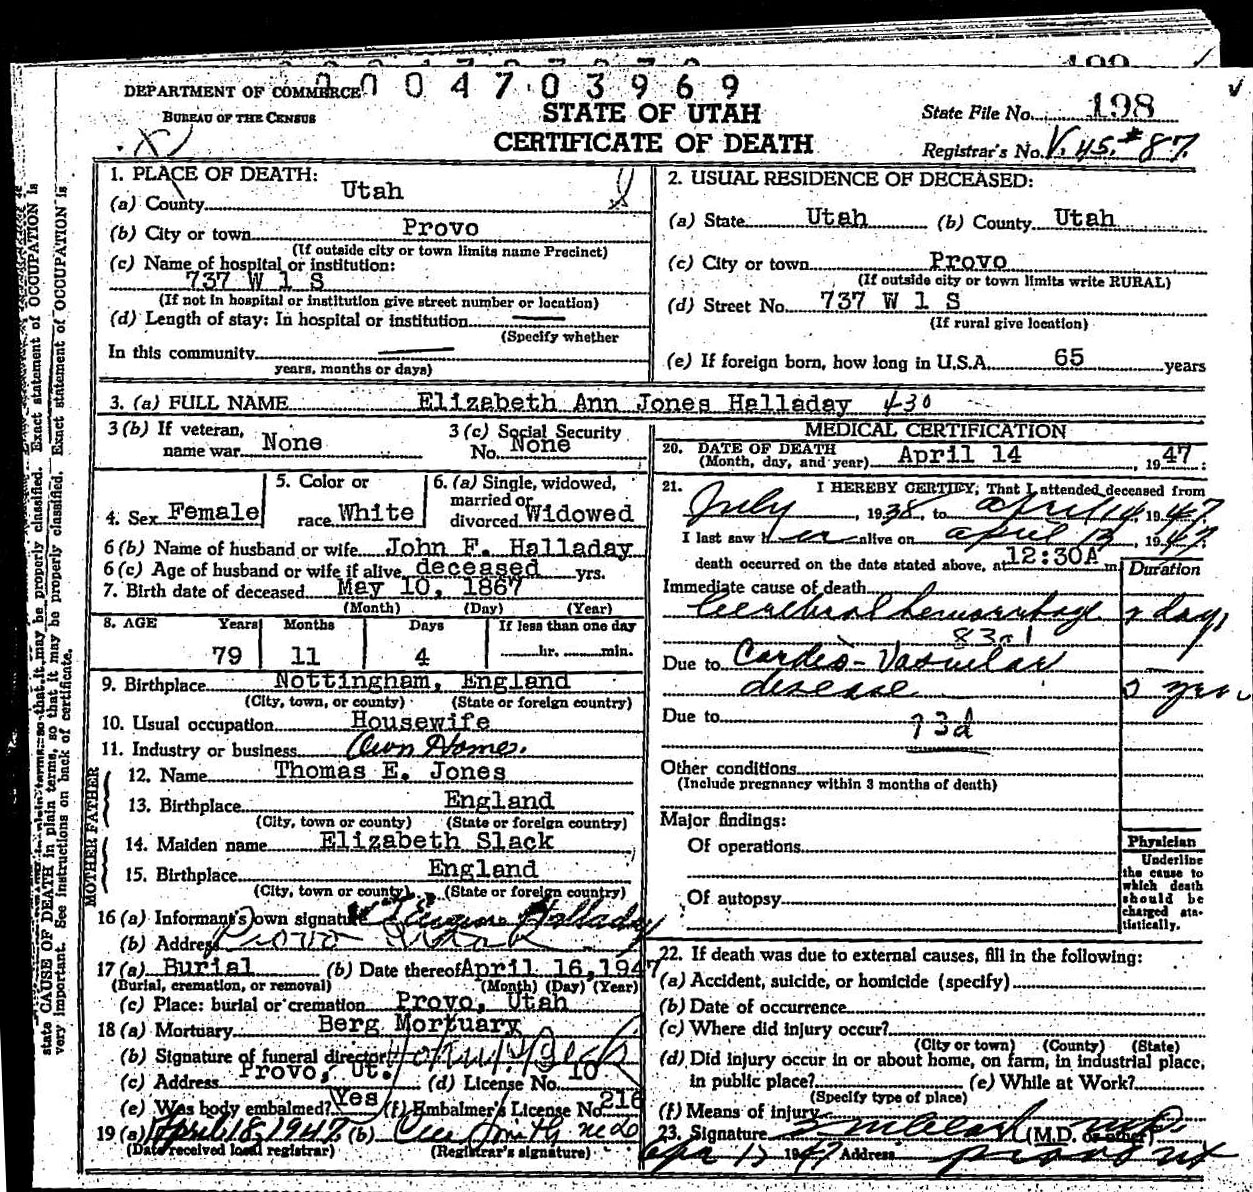 0004703969
DEPARTMENT OF COMMERCE
BUREAU OF THE CENSUS
STATE OF UTAH
CERTIFICATE OF DEATH
State File No. 198
Registrar's No. V. 45. # 87.
1. PLACE OF DEATH:
(a) County Utah
(b) City or town Provo
(If outside city or town limits name Precinct)
(c) Name of hospital or institution:
737 W 1 S
(If not in hospital or institution give street number or location)
(d) Length of stay: In hospital or institution —
(Specify whether
In this community —
years, months or days)
2. USUAL RESIDENCE OF DECEASED:
(a) State Utah (b) County Utah
(c) City or town Provo
(If outside city or town limits write RURAL)
(d) Street No. 737 W 1 S
(If rural give location)
(e) If foreign born, how long in U.S.A. 65 years
3. (a) FULL NAME Elizabeth Ann Jones Halladay 430
3 (b) If veteran, name war None
3 (c) Social Security No. None
4. Sex Female
5. Color or race White
6. (a) Single, widowed, married or divorced Widowed
6 (b) Name of husband or wife John F. Halladay
6 (c) Age of husband or wife if alive deceased yrs.
7. Birth date of deceased May 10, 1867
(Month) (Day) (Year)
8. AGE Years Months Days If less than one day
79 11 4 hr. min.
9. Birthplace Nottingham, England
(City, town, or county) (State or foreign country)
10. Usual occupation Housewife
11. Industry or business Own Home.
FATHER
12. Name Thomas E. Jones
13. Birthplace England
(City, town or county) (State or foreign country)
MOTHER
14. Maiden name Elizabeth Slack
15. Birthplace England
(City, town or county) (State or foreign country)
16 (a) Informant's own signature Halladay
(b) Address Provo Utah
17 (a) Burial (b) Date thereof April 16, 1947
(Burial, cremation, or removal) (Month) (Day) (Year)
(c) Place: burial or cremation Provo, Utah
18 (a) Mortuary Berg Mortuary
(b) Signature of funeral director
(c) Address Provo, Ut. (d) License No. 10
(e) Was body embalmed? Yes (f) Embalmer's License No. 216
19 (a) April 18, 1947. (b)
(Date received local registrar) (Registrar's signature)
MEDICAL CERTIFICATION
20. DATE OF DEATH
(Month, day, and year) April 14, 1947:
21. I HEREBY CERTIFY, That I attended deceased from
July, 1938, to April 14, 1947.
I last saw her alive on April 13, 1947.
death occurred on the date stated above, at 12:30A m.
Duration
Immediate cause of death
Cerebral hemorrhage 2 days
83a1
Due to Cardio-Vascular
disease
Due to 93d
Other conditions
(Include pregnancy within 3 months of death)
Major findings:
Of operations
Of autopsy
Physician
Underline
the cause to
which death
should be
charged sta-
tistically.
22. If death was due to external causes, fill in the following:
(a) Accident, suicide, or homicide (specify)
(b) Date of occurrence
(c) Where did injury occur?
(City or town) (County) (State)
(d) Did injury occur in or about home, on farm, in industrial place,
in public place? (e) While at Work?
(Specify type of place)
(f) Means of injury
23. Signature (M.D. or other)
1947 Address Provo Ut
state CAUSE OF DEATH in plain terms, so that it may be properly classified. Exact statement of OCCUPATION is
very important. See instructions on back of certificate.